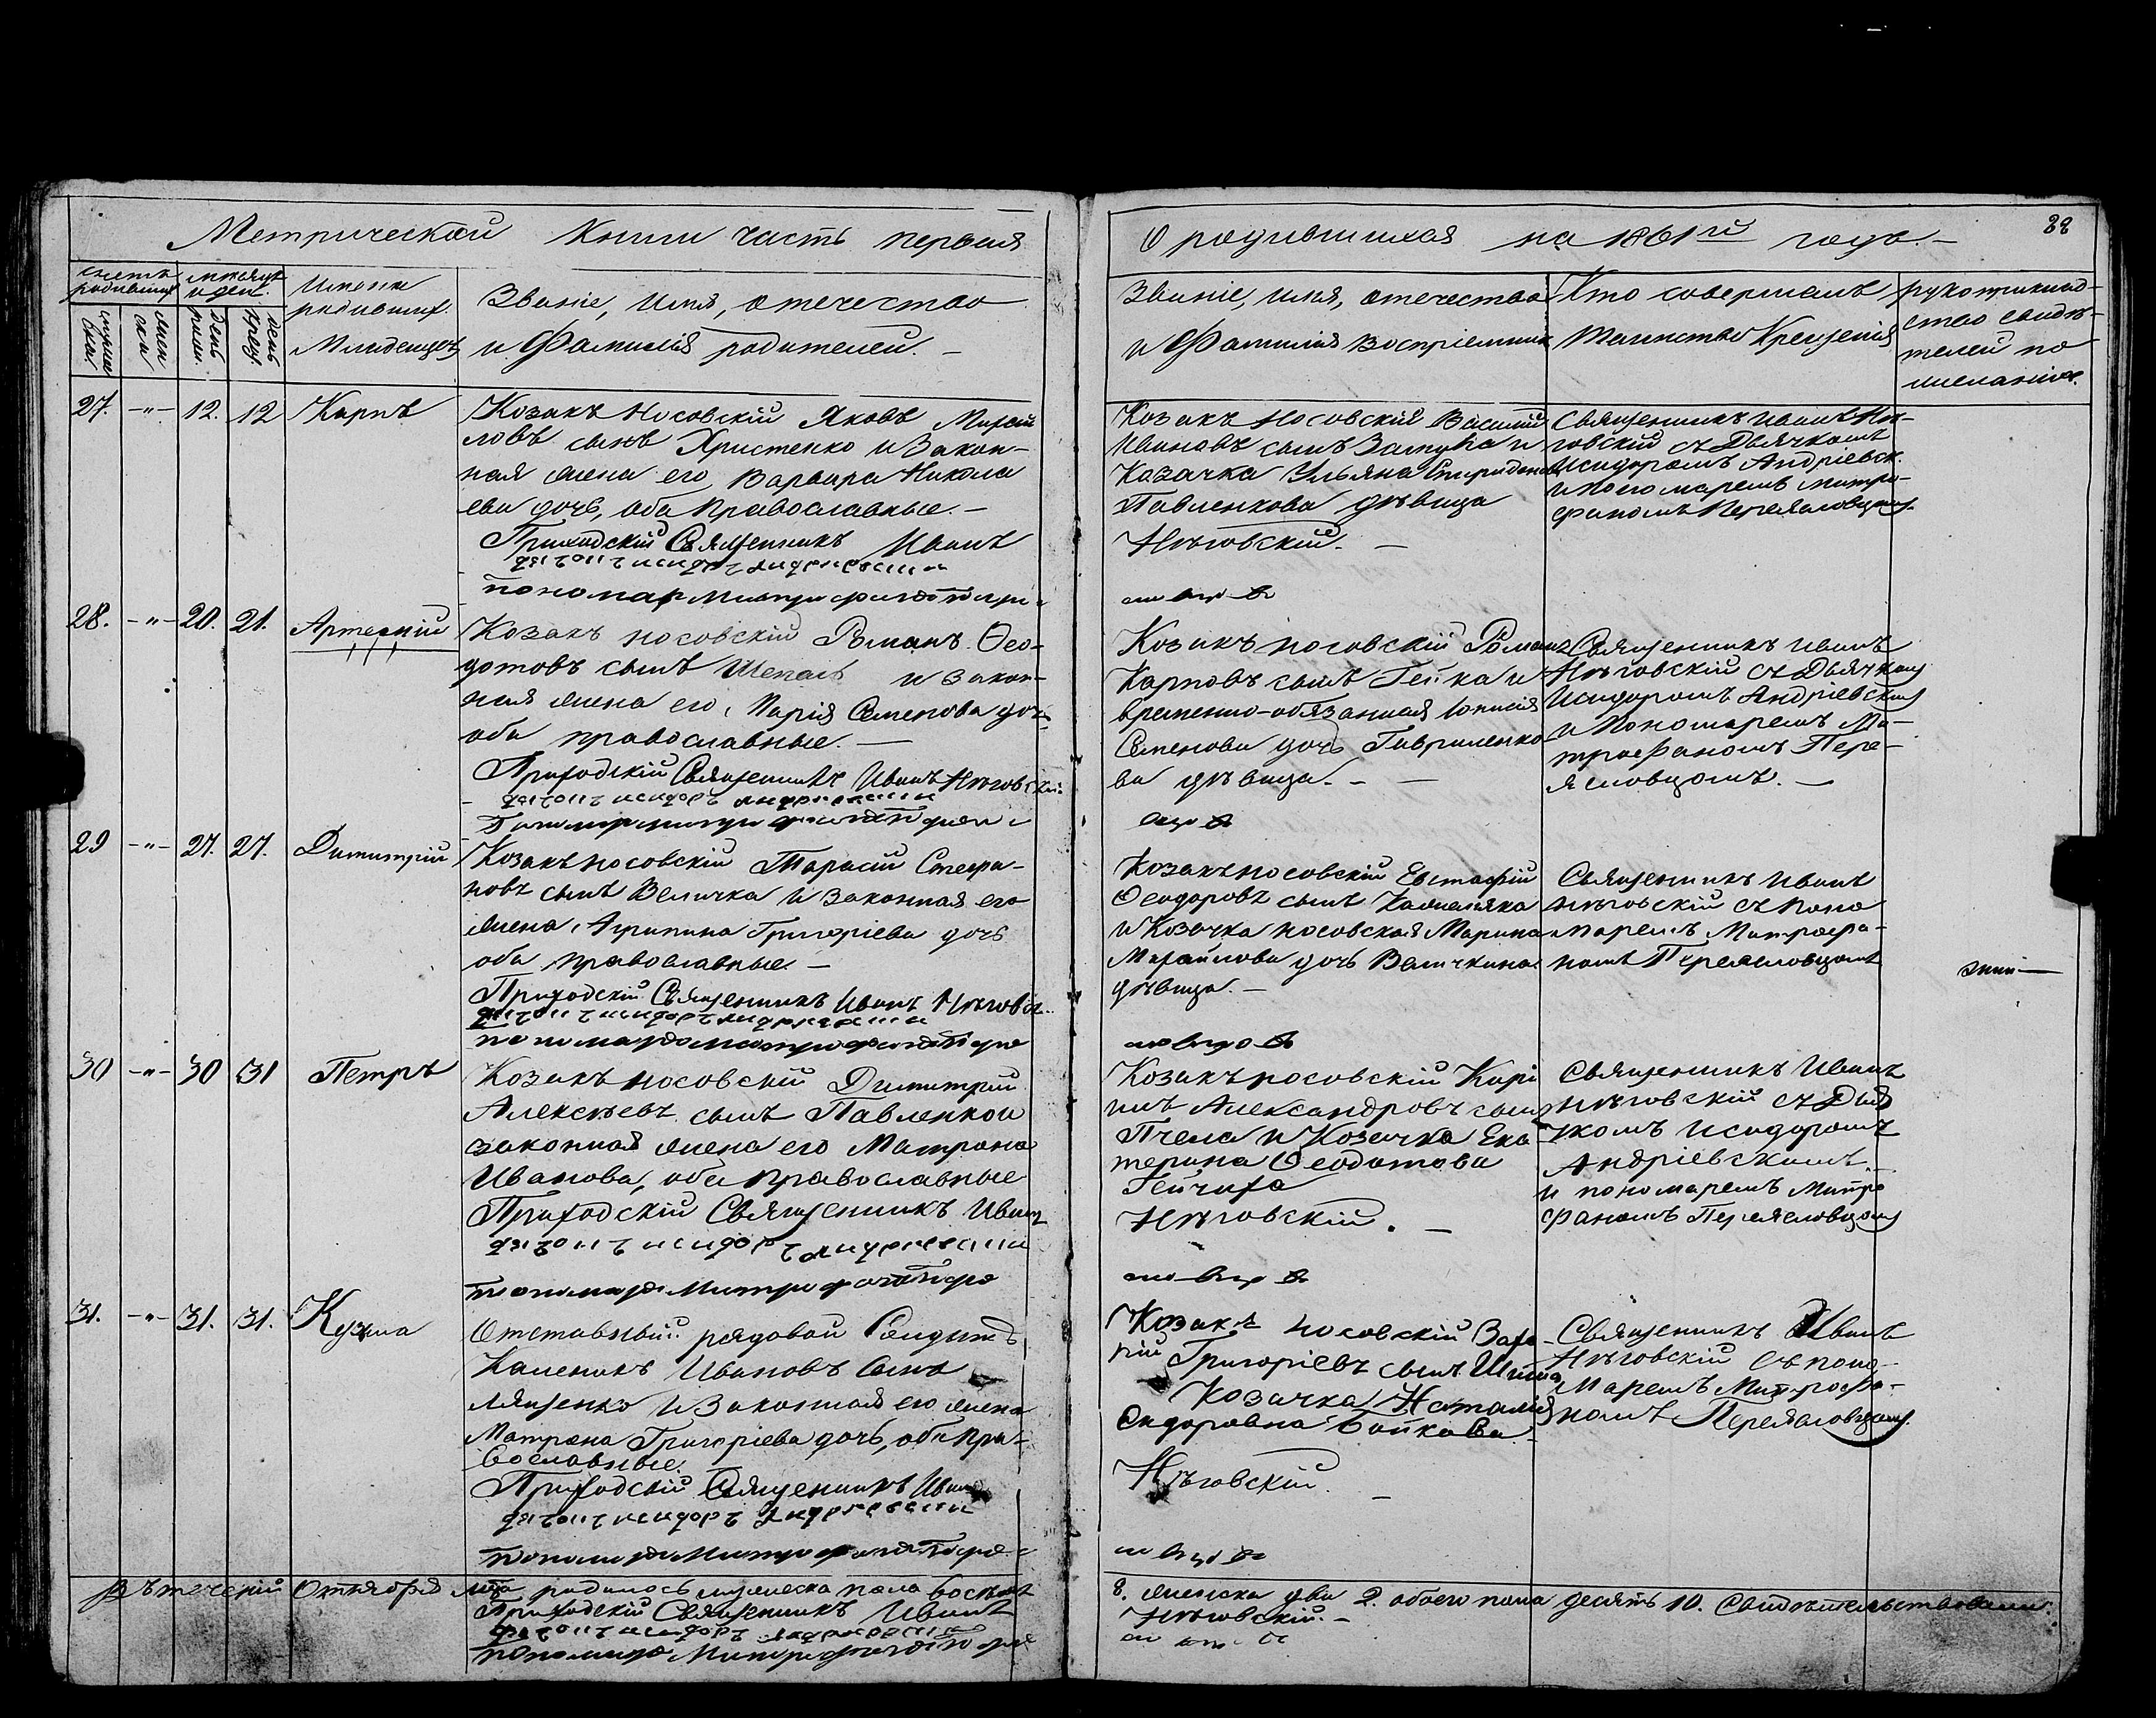 Метрической Книги часть первая
О родившихся на 1861й годъ.
счетъ родившихся
мѣсяцъ и день.
Имена родивших. Младенцевъ
Званіе, имя, отечество
и Фамилія родителей.
Званіе, имя, отечество
и Фамилія воспріемник
Кто совершалъ
таинство Крещенія
рукоприклад-
ство свидѣ-
телей по
желанію.
27. -"- 12. 12 Карпъ
Козакъ Носовскій Яковъ Михай
ловъ сынъ Христенко и Закон-
ная жена его Варвара Никола
ева дочь, оба Православные.
Приходскій Священникъ Иванъ
дячокъ исидоръ андриевский
пономар Митрофан
Козакъ Носовскій Василій
Ивановъ сынъ и
Казачка Ульяна Спиридонова
Павленкова дѣвица
Нѣговскій.
Священникъ Иванъ Нѣ-
говскій съ Дьячкомъ
Исидоромъ Андріевск.
и пономаремъ Митро-
фаномъ Переясловцомъ
28. -"- 20. 21. Артемій
Козакъ носовскій Романъ Ѳео-
дотовъ сынъ и закон-
ная жена его, Марія Семенова дочь
оба православные.
Приходскій Священникъ Иванъ Нѣговскій
дячокъ исидоръ андриевский
Козакъ носовскій Романъ
Карповъ сынъ Гейка и
временно-обязанная
Семенова дочь Гавриленко
ва дѣвица.
Священникъ Иванъ
Нѣговскій съ Дьячком
Исидоромъ Андріевским
и Пономаремъ Ми-
трофаномъ Пере-
ясловцомъ.
29 -"- 27. 27. Димитрій
Козакъ носовскій Тарасій Стефа-
новъ сынъ Величка и законная его
жена, Агрипина Григоріева дочь
оба православные
Приходскій Священникъ Иванъ Нѣговск.
дячокъ исидоръ андриевский
пономарь Митрофан
Козакъ носовскій Евстафій
Ѳеодоровъ сынъ
и Козачка носовская Марина
Михайлова дочь Величкина
дѣвица.
Священникъ Иванъ
Нѣговскій съ поно
маремъ Митрофа-
номъ Переясловцомъ
30 -"- 30 31 Петръ
Козакъ носовскій Димитрій
Алексѣевъ сынъ Павленко и
законная жена его Матрона
Иванова, оба православные
Приходскій Священникъ Иванъ
дячокъ исидоръ андриевский
пономарь Митрофан
Козакъ носовскій Кирі
лъ Александровъ сынъ
Пчела и Козачка Ека
терина Ѳеодотова
Гейчиха
Нѣговскій.
Священникъ Иванъ
Нѣговскій съ Дья
чкомъ Исидоромъ
Андріевскимъ
и пономаремъ Митро
фаномъ Переясловцом
31. -"- 31. 31. Кузма
Отставный рядовой
Иванов сынъ
Ляшенко и Законная его жена
Матрона Григоріева дочь, оба пра-
вославные.
Приходскій Священникъ Иванъ
дячокъ исидоръ андриевский
пономарь Митрофан
Козакъ носовскій Заха
рій Григоріевъ сынъ
Козачка Наталія
Сидоровна Бойкова
Нѣговскій.
Священникъ Иванъ
Нѣговскій съ поно-
маремъ Митрофа-
номъ Переясловцомъ.
Въ теченіи Октября мца родилось мужеска пола восемь
8. женска два 2. обоего пола десять 10. Свидѣтельствовали.
Приходскій Священникъ Иванъ
Нѣговскій.
дячокъ исидоръ андриевский
пономарь Митрофан